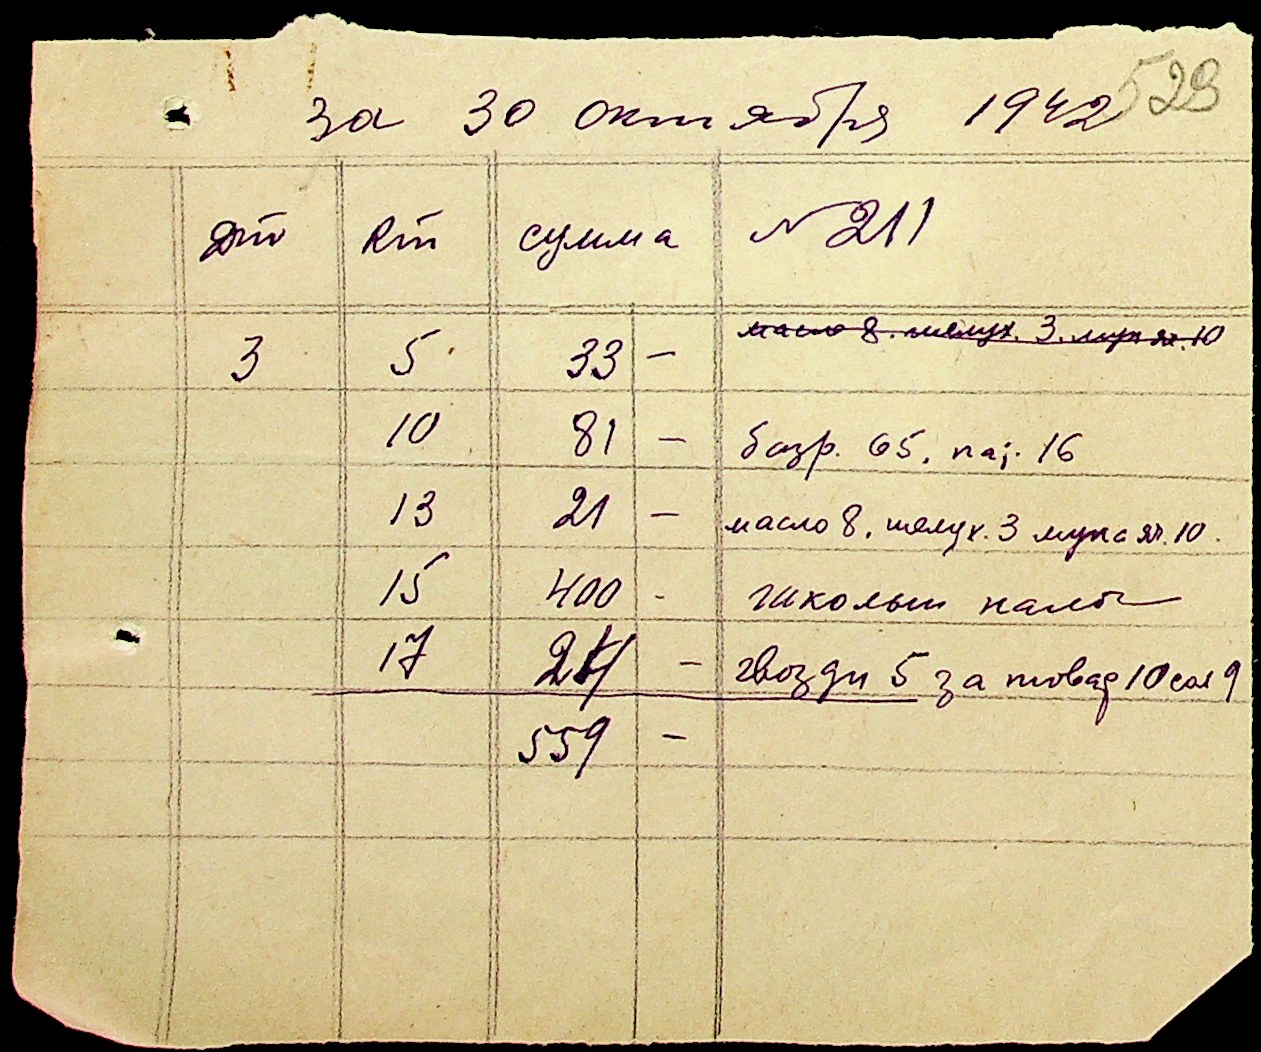 528
за 30 октября 1942
Дт Кт сумма № 211
3 5 33 – масло 8. шелух. 3. мук ят. 10
10 81 – базр. 65, пај. 16
13 21 – масло 8, шелух. 3 мука ят. 10.
15 400 - школьн
17 24 – гвозди 5 за товар 10 сол 9
559 –